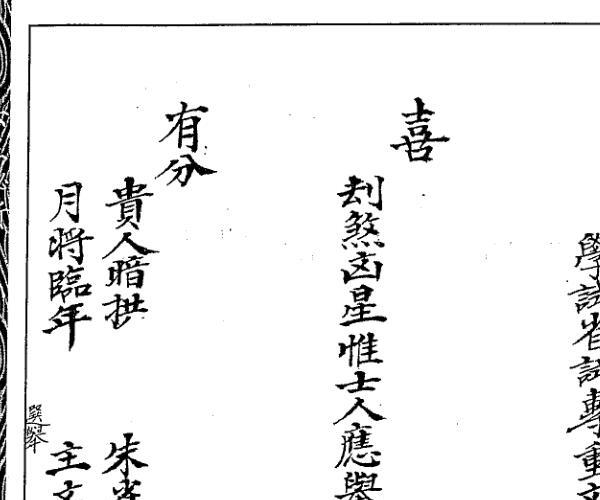 學試省試擊重
喜
刦煞凶星惟士人應舉
有分
貴人暗拱　朱
月將臨年　主文